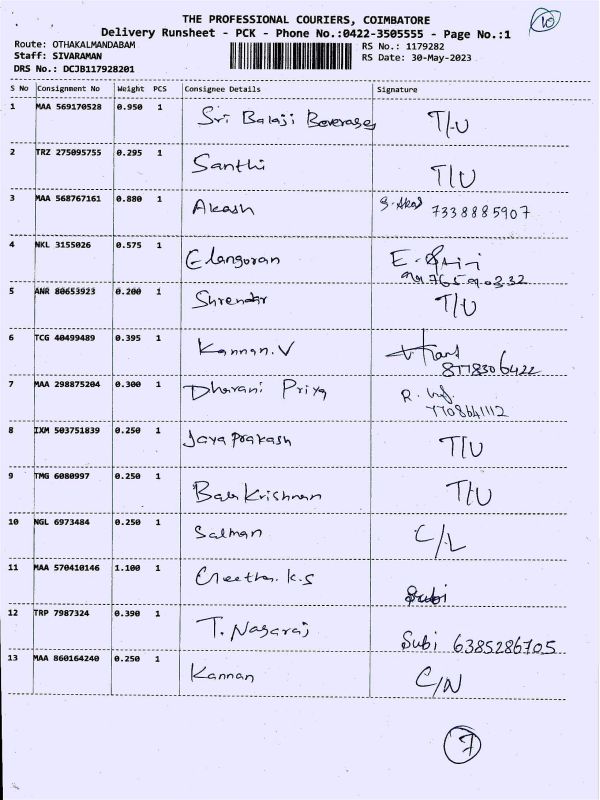 10
THE PROFESSIONAL COURIERS, COIMBATORE
Delivery Runsheet - PCK - Phone No.:0422-3505555 - Page No.:1
Route: OTHAKALMANDABAM RS No.: 1179282
Staff: SIVARAMAN RS Date: 30-May-2023
DRS No.: DCJB117928201
S No Consignment No Weight PCS Consignee Details Signature
1 MAA 569170528 0.950 1 Sri Balaji Beverages T/U
2 TRZ 275095755 0.295 1 Santhi T/U
3 MAA 568767161 0.880 1 Akash 7338885907
4 NKL 3155026 0.575 1 Elangovan E.
5 ANR 80653923 0.200 1 T/U
6 TCG 40499489 0.395 1 Kannan.V
8778306422
7 MAA 298875204 0.300 1 Dharani Priya R.
7708641112
8 IXM 503751839 0.250 1 Jayaprakash T/U
9 TMG 6080997 0.250 1 Bala Krishnan T/U
10 NGL 6973484 0.250 1 Salman C/L
11 MAA 570410146 1.100 1 K.S Subi
12 TRP 7987324 0.390 1 T. Nagaraj Subi 6385286705
13 MAA 860164240 0.250 1 Kannan C/N
7